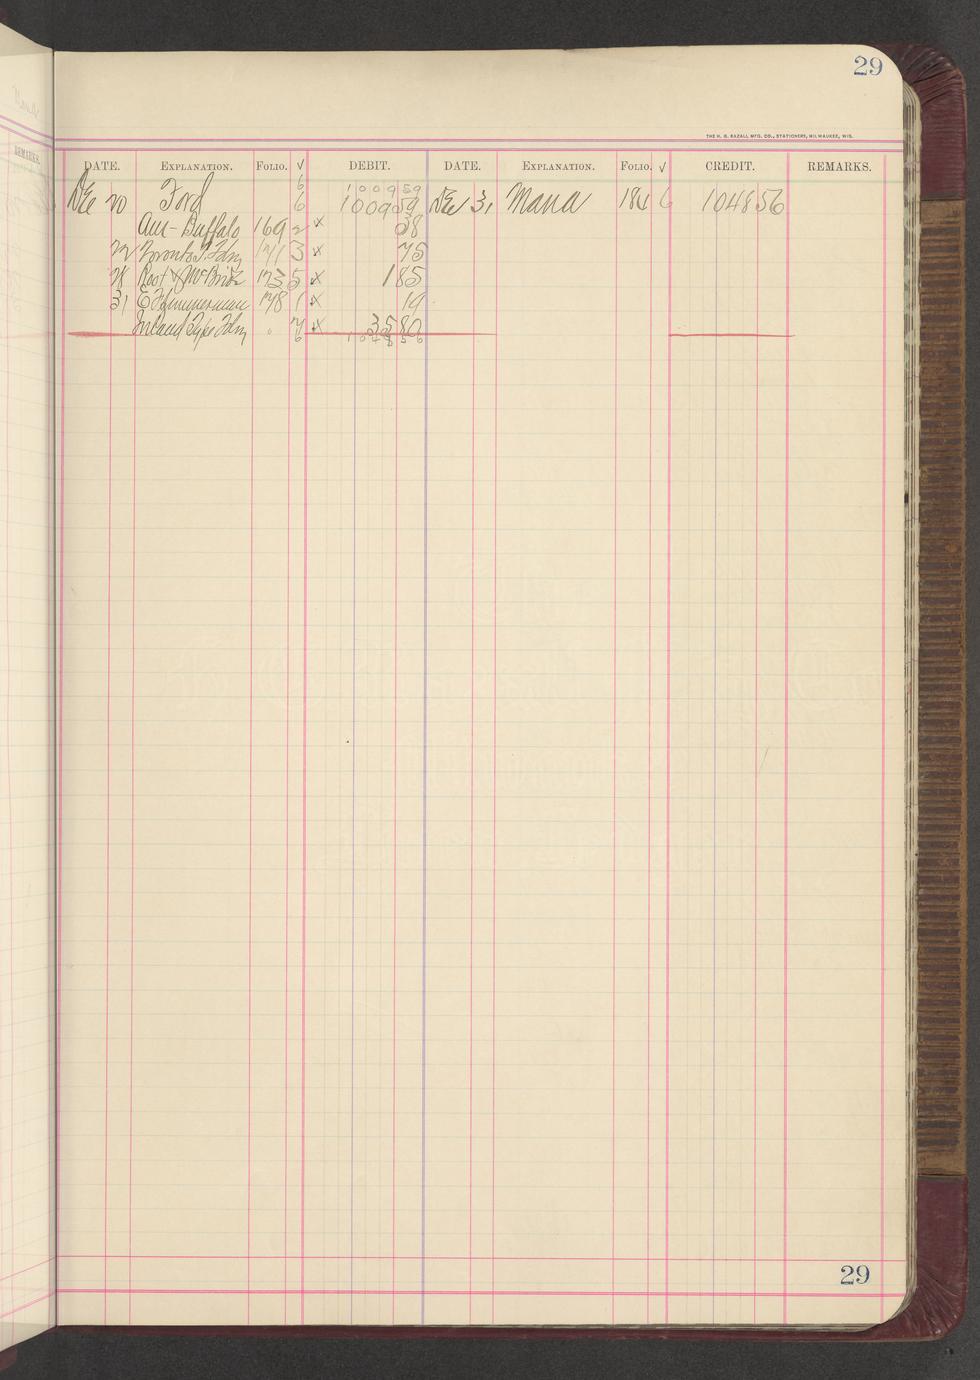 29
THE H. G. RAZALL MFG. CO., STATIONERS, MILWAUKEE, WIS.
REMARKS.
DATE. EXPLANATION. FOLIO. √ DEBIT. DATE. EXPLANATION. FOLIO. √ CREDIT. REMARKS.
6 1009 59
Dec 20 Ford 6 1009 59 Dec 31 Mana 184 6 1048 56
Am-Buffalo 169 2 x 38
22 Toronto T. Fdry 171 3 x 75
28 Root & McBride 173 5 x 1 85
31 E Zimmerman 178 1 x 19
Inland Type Fdry " 7 x 35 80
6 1048 56
29